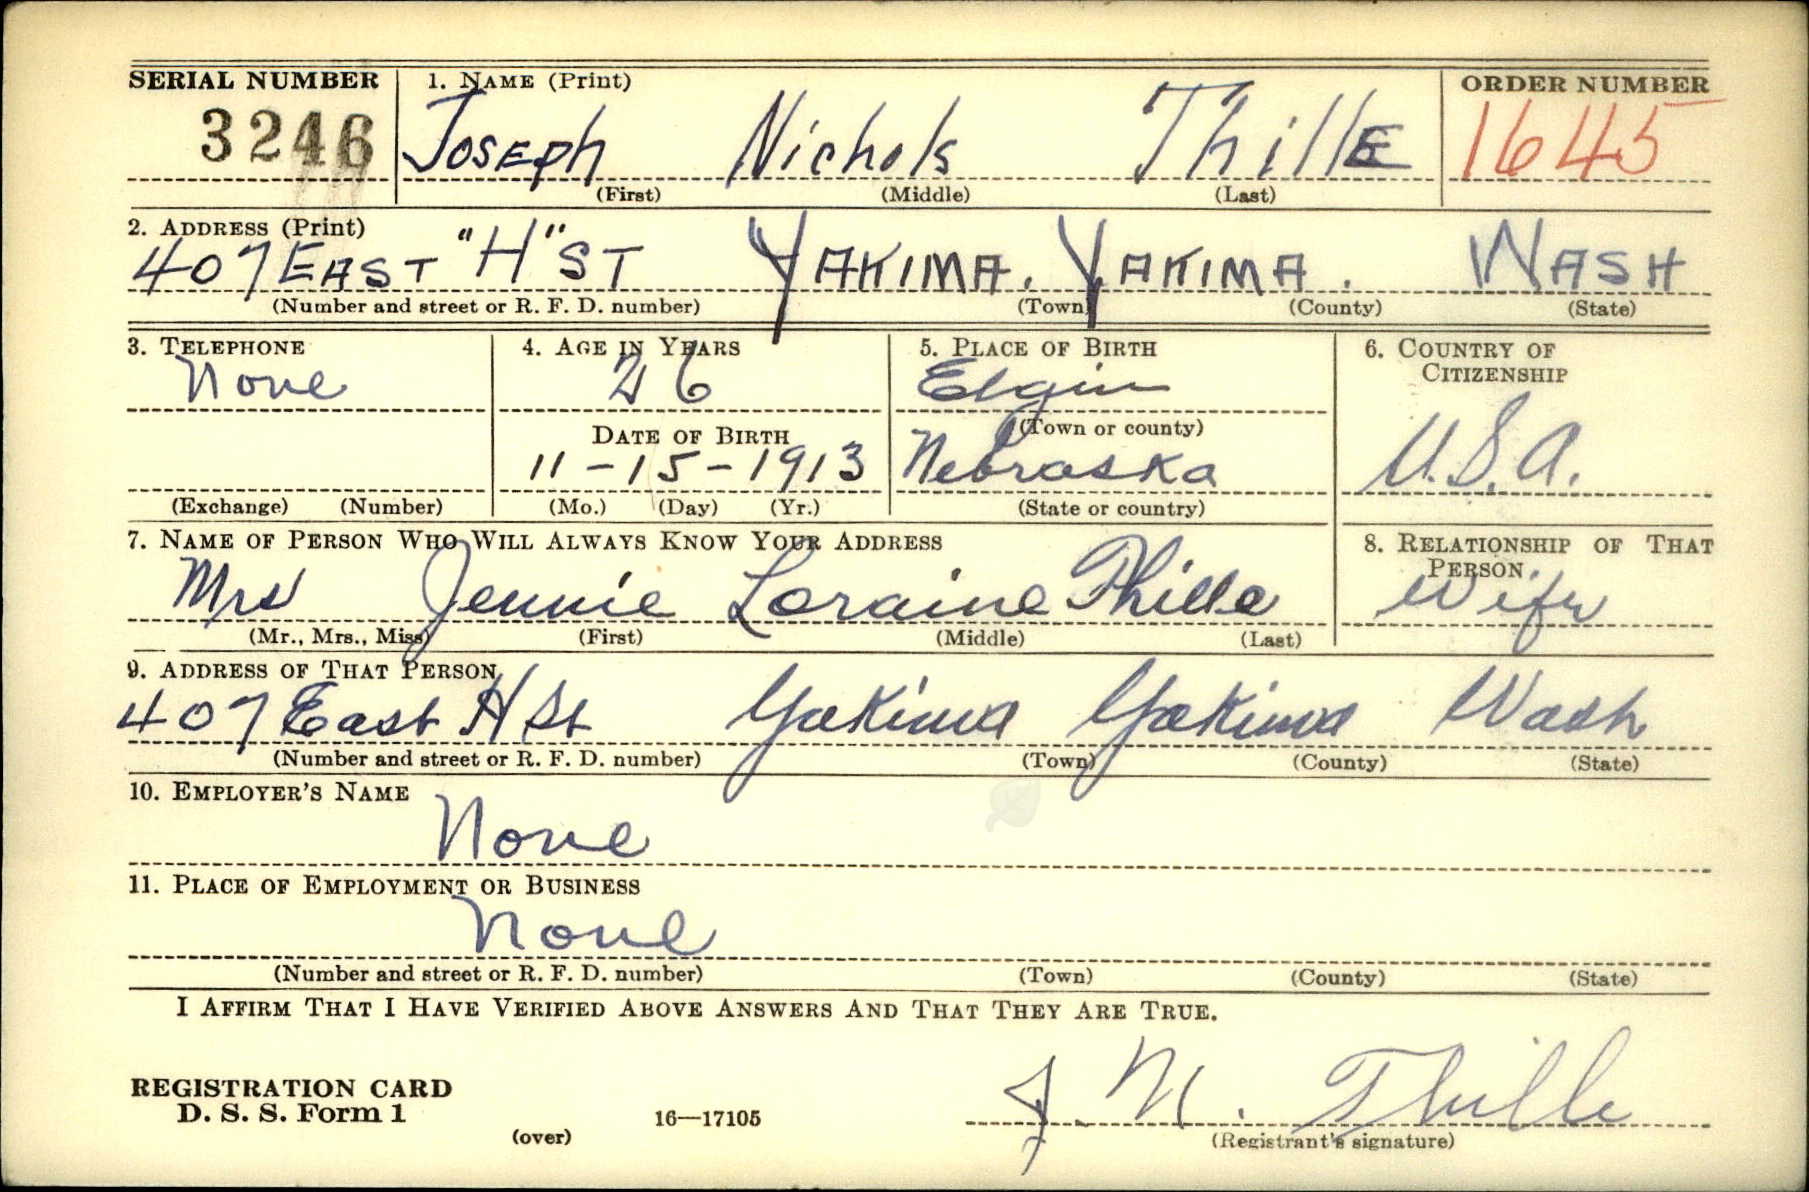 SERIAL NUMBER 1. NAME (Print) ORDER NUMBER
3246 JOSEph Nichols ThillE 1645
(First) (Middle) (Last)
2. ADDRESS (Print)
407 EAST "H" ST YAKIMA. YAKIMA. WASH
(Number and street or R. F. D. number) (Town) (County) (State)
3. TELEPHONE 4. AGE IN YEARS 5. PLACE OF BIRTH 6. COUNTRY OF CITIZENSHIP
None 26 Elgin
DATE OF BIRTH (Town or county)
11-15-1913 Nebraska U.S.A.
(Exchange) (Number) (Mo.) (Day) (Yr.) (State or country)
7. NAME OF PERSON WHO WILL ALWAYS KNOW YOUR ADDRESS 8. RELATIONSHIP OF THAT PERSON
Mrs Jennie Loraine Thille Wife
(Mr., Mrs., Miss) (First) (Middle) (Last)
9. ADDRESS OF THAT PERSON
407 East H St Yakima Yakima Wash
(Number and street or R. F. D. number) (Town) (County) (State)
10. EMPLOYER'S NAME
None
11. PLACE OF EMPLOYMENT OR BUSINESS
None
(Number and street or R. F. D. number) (Town) (County) (State)
I AFFIRM THAT I HAVE VERIFIED ABOVE ANSWERS AND THAT THEY ARE TRUE.
REGISTRATION CARD
D. S. S. Form 1 16—17105 J. N. Thille
(over) (Registrant's signature)